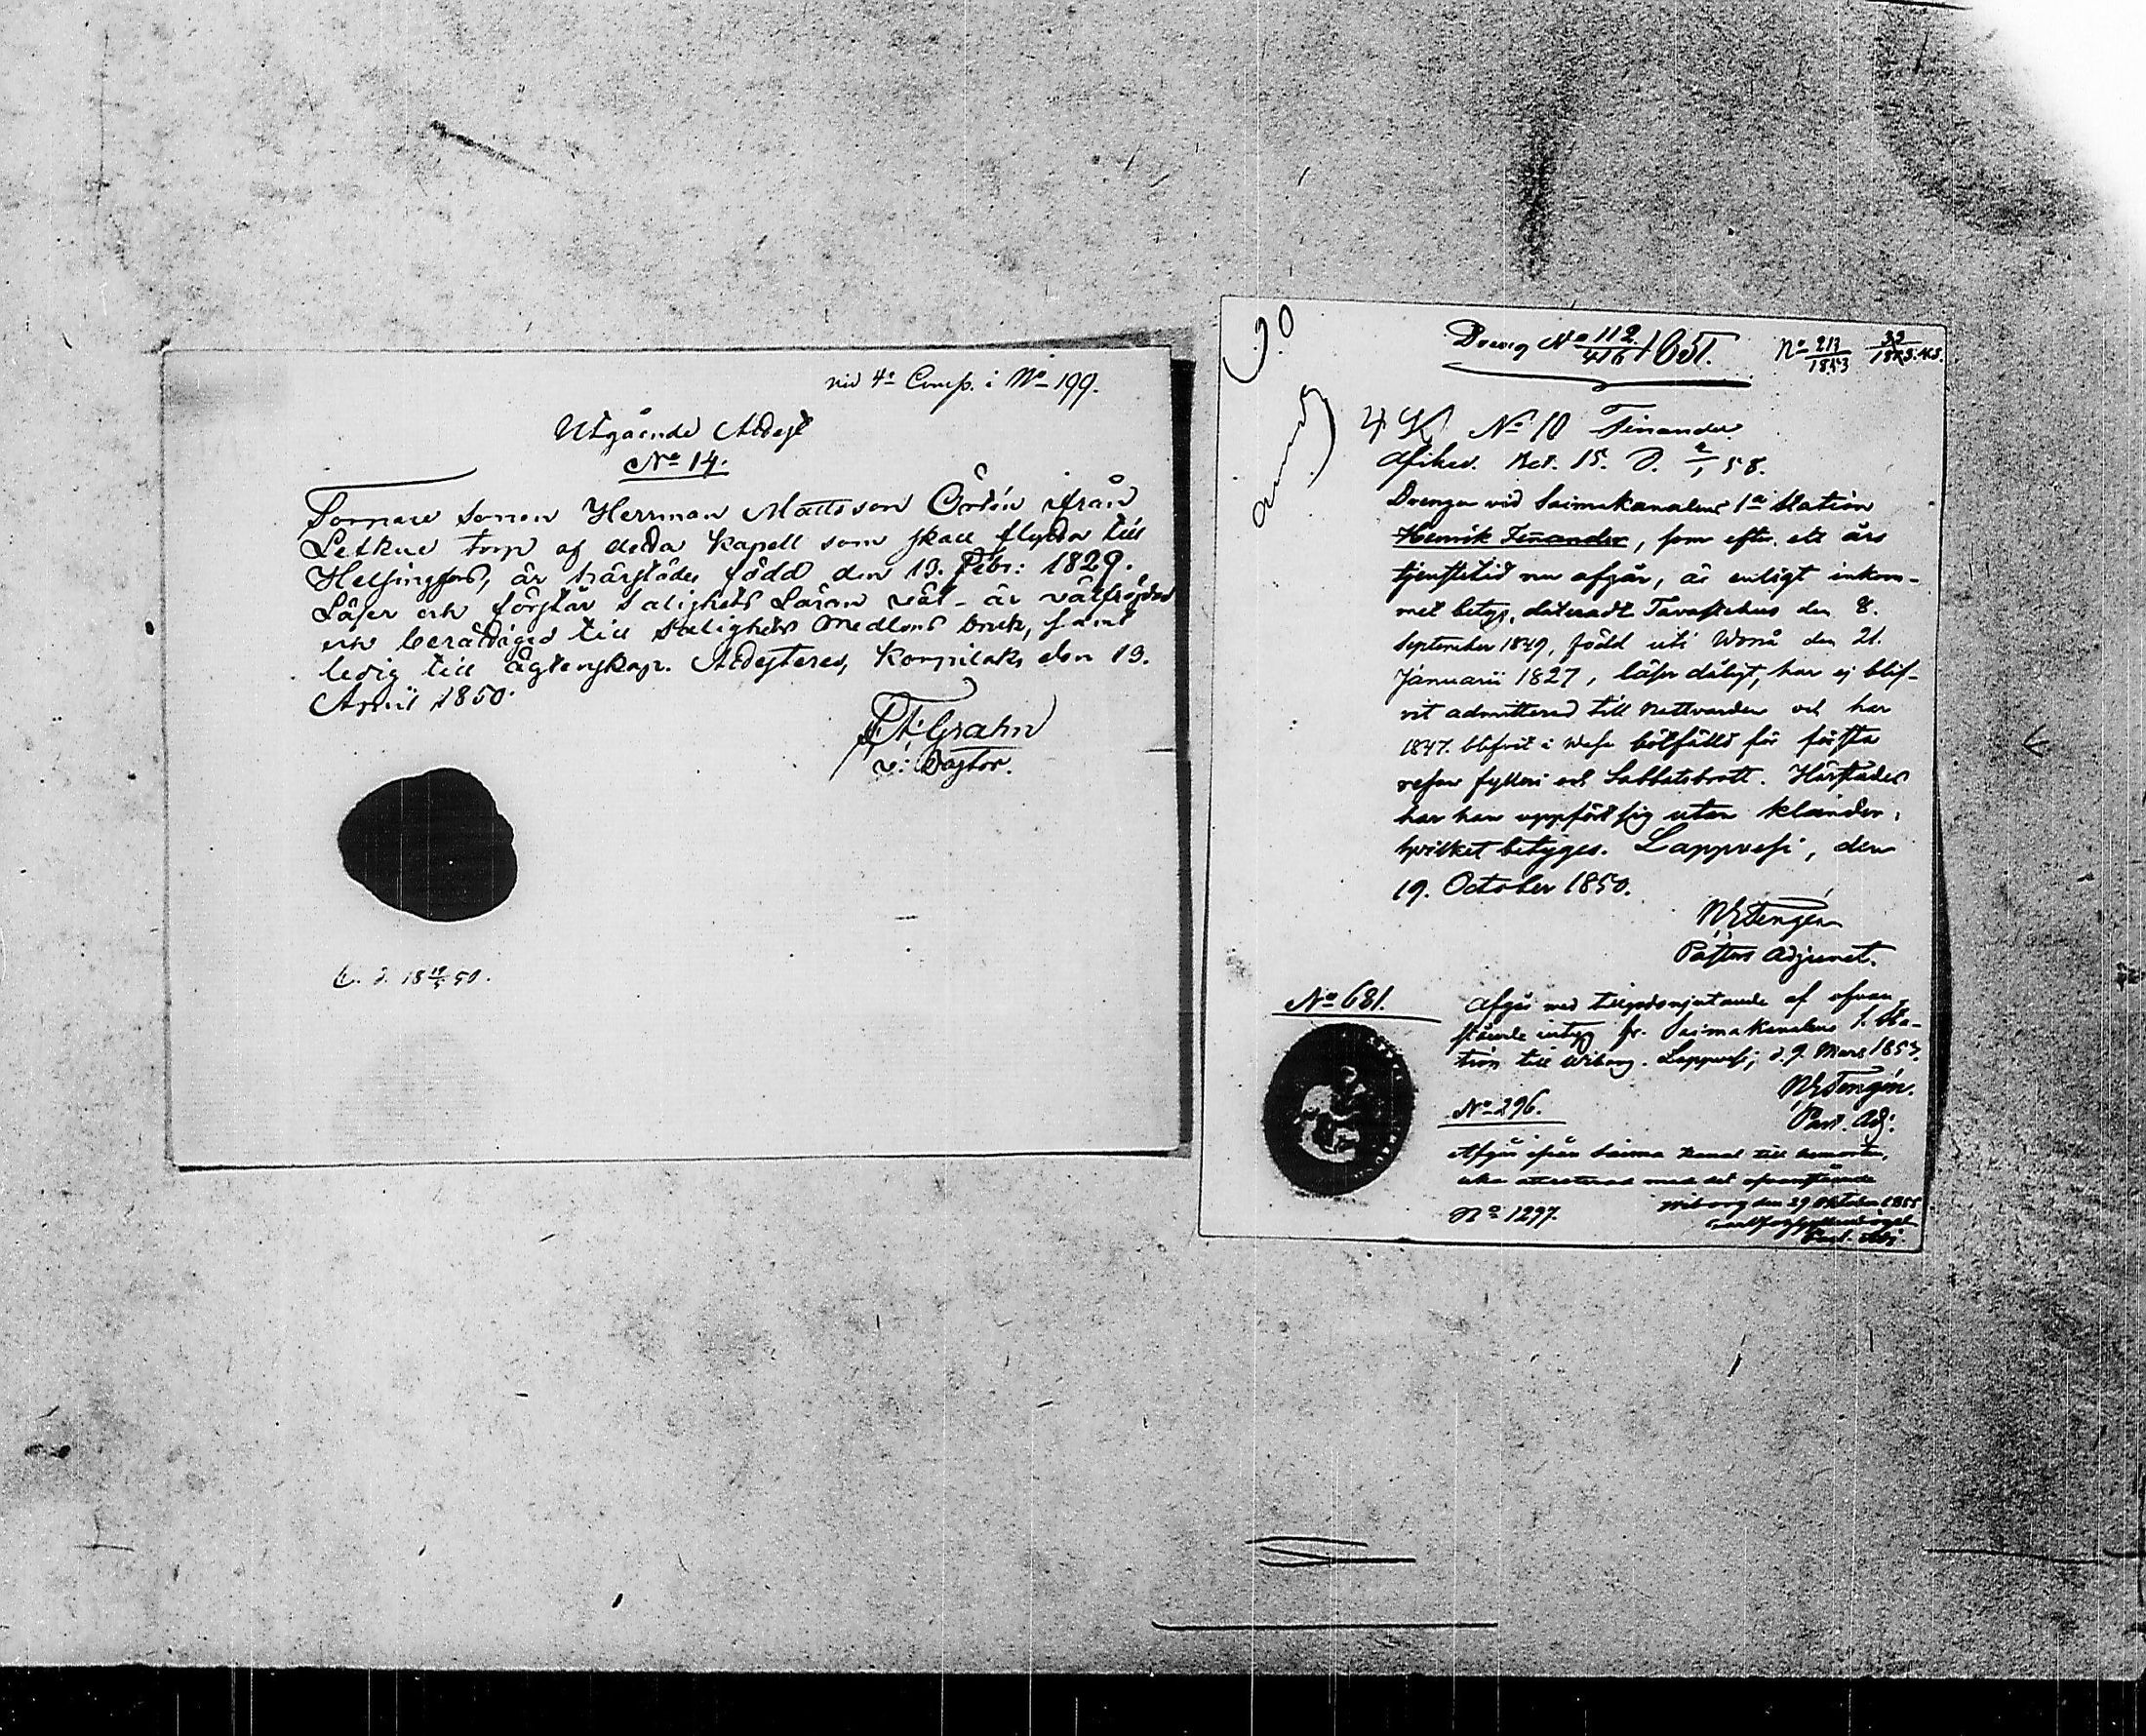 vid 4e Comp. i No 199.
Utgående Attest
No 14.
Torpare sonen Herrman Mattsson Örtén ifrån
Letkue torp af detta Kapell som skall flytta till
Helsingfors, är härstädes född den 13. Febr: 1829.
Läser och förstår Salighets Läran väl - är välfrejdad
och berättigad till Salighets Medlens bruk, samt
ledig till ägtenskap. Attesteras, Korpilaks den 13.
April 1850.
Grahn
v: Pastor.
50.
Dreng No 112/416 /1851. No 213/1853
4 No 10 Finander
58.
Drengen vid Saimakanalens 1a Station
Henrik Finander, som efter ett års
tjenstetid nu afgår, är enligt inkom-
met betyg, dateradt Tavastehus den 8.
September 1849, född uti Wörå den 21.
Januarii 1827, läser dåligt, har ej blif-
vit admitterad till Nattvarden och har
1847. blifvit i Wasa bötfälld för första
resan fylleri och Sabbatsbrott. Härstädes
har han uppfört sig utan klander,
hvilket betyges. Lappvesi, den
19. October 1850.
Pastors Adjunct.
No 681.
Afgår med tillgodonjutande af ofvan-
stående intyg fr. Saima Kanalens 1. Sta-
tion till Wiborg. Lappvesi, d. 9. Mars 1853.
Past. Adj:
No 296.
Afgår ifrån Saima Kanal till
med det ofvanstående
Wiborg den 29 Oktober 1855
No 1297.
Past. Adj.